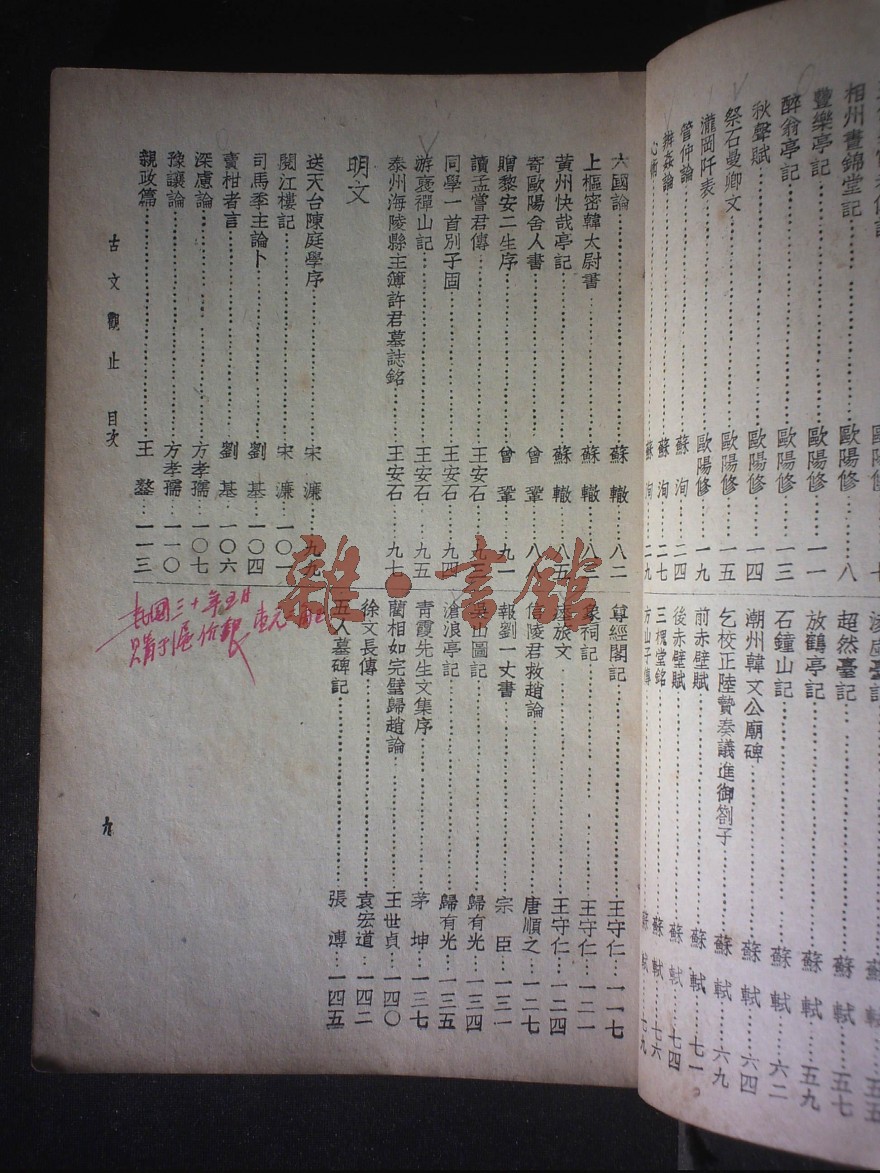 相州晝錦堂記……歐陽修……八
豐樂亭記……歐陽修……一一
醉翁亭記……歐陽修……一三
秋聲賦……歐陽修……一四
祭石曼卿文……歐陽修……一五
瀧岡阡表……歐陽修……一九
管仲論……蘇洵……二四
辨姦論……蘇洵……二七
心術……蘇洵……二九
凌虛臺記……蘇軾……五五
超然臺記……蘇軾……五七
放鶴亭記……蘇軾……五九
石鐘山記……蘇軾……六二
潮州韓文公廟碑……蘇軾……六四
乞校正陸贄奏議進御劄子……蘇軾……六九
前赤壁賦……蘇軾……七一
後赤壁賦……蘇軾……七四
三槐堂銘……蘇軾……七六
方山子傳……蘇軾……七九
六國論……蘇轍……八二
上樞密韓太尉書……蘇轍……八三
黃州快哉亭記……蘇轍……八五
寄歐陽舍人書……曾鞏……八八
贈黎安二生序……曾鞏……九一
讀孟嘗君傳……王安石……九三
同學一首別子固……王安石……九四
游褒禪山記……王安石……九五
泰州海陵縣主簿許君墓誌銘……王安石……九七
明文
送天台陳庭學序……宋濂……九九
閱江樓記……宋濂……一〇一
司馬季主論卜……劉基……一〇四
賣柑者言……劉基……一〇六
深慮論……方孝孺……一〇七
豫讓論……方孝孺……一一〇
親政篇……王鏊……一一三
尊經閣記……王守仁……一一七
象祠記……王守仁……一二一
瘞旅文……王守仁……一二四
信陵君救趙論……唐順之……一二七
報劉一丈書……宗臣……一三一
吳山圖記……歸有光……一三四
滄浪亭記……歸有光……一三五
青霞先生文集序……茅坤……一三七
藺相如完璧歸趙論……王世貞……一四〇
徐文長傳……袁宏道……一四二
五人墓碑記……張溥……一四五
古文觀止 目次
九
民國三十年五月
購于滬
雜·書館